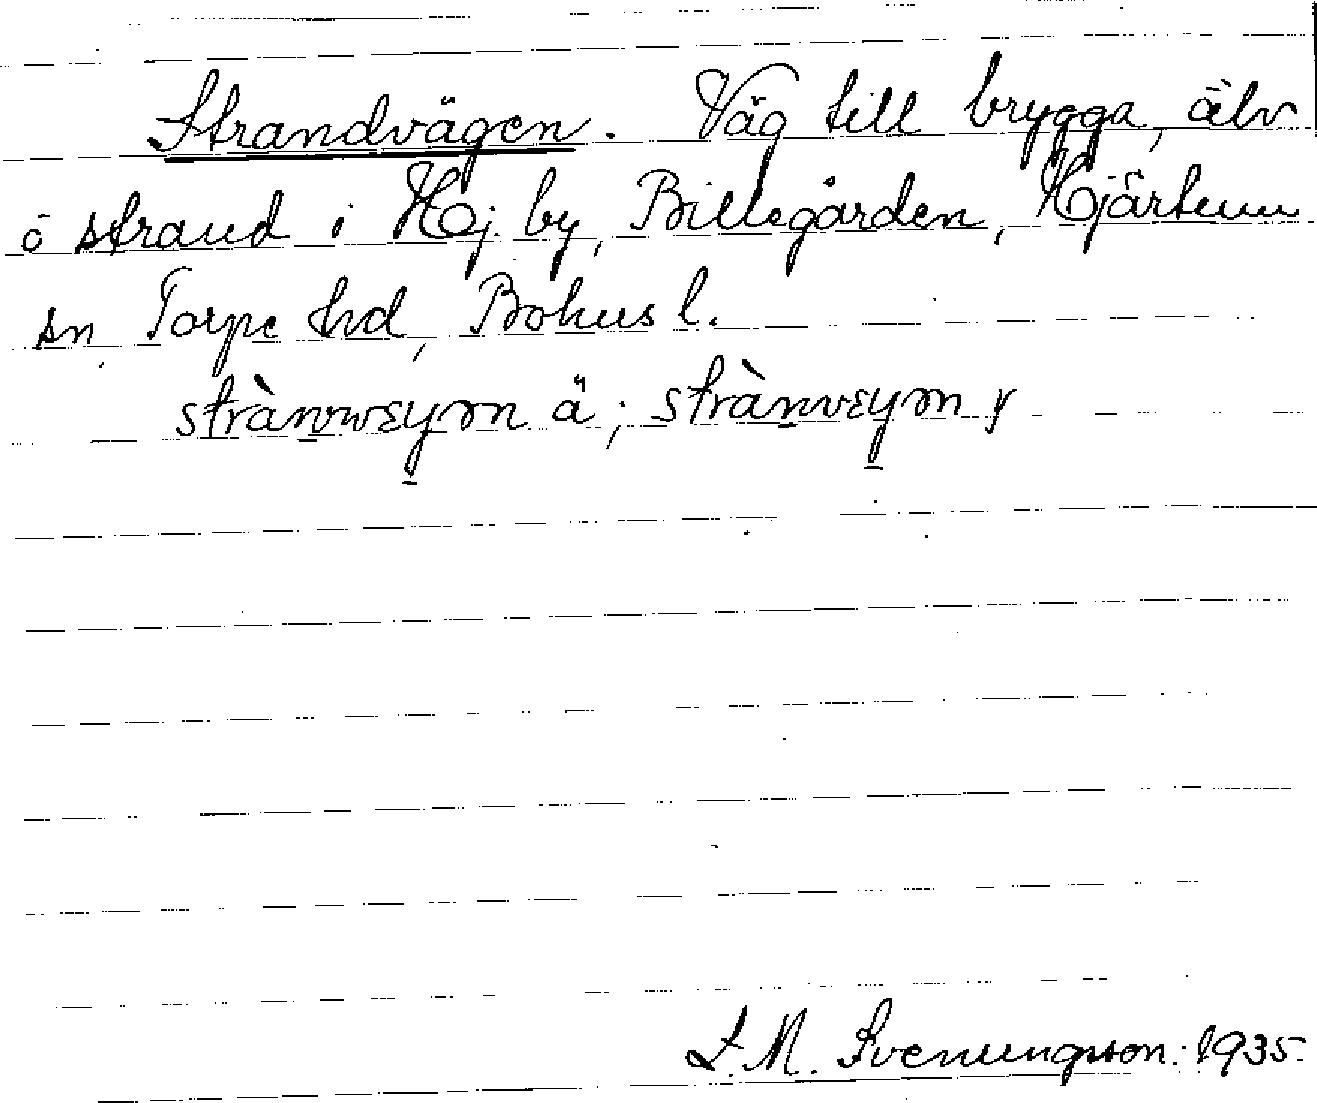 Strandvägen. Väg till brygga, älv
o strand i Hj. by, Billegården, Hjärtum
sn, Torpe hd, Bohus l.
strànvwɛγən ä; strànvɛγən y
S. M. Svenungsson. 1935.